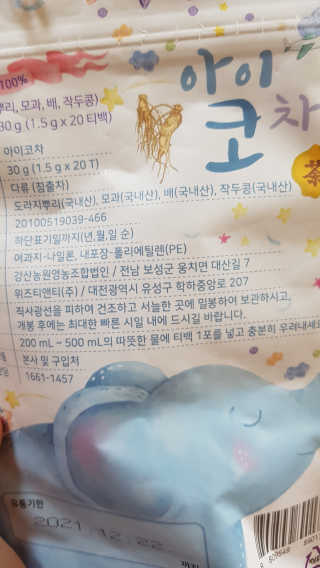 아이
코차
茶
100%
뿌리, 모과, 배, 작두콩)
30 g (1.5 g x 20 티백)
아이코차
30 g (1.5 g x 20 T)
다류 (침출차)
도라지뿌리(국내산), 모과(국내산), 배(국내산), 작두콩(국내산)
20100519039-466
하단표기일까지(년,월,일 순)
여과지-나일론 내포장-폴리에틸렌(PE)
강산농원영농조합법인 / 전남 보성군 웅치면 대산길 7
위즈티앤티(주) / 대전광역시 유성구 학하중앙로 207
직사광선을 피하여 건조하고 서늘한 곳에 밀봉하여 보관하시고,
개봉 후에는 최대한 빠른 시일 내에 드시길 바랍니다.
200 mL ~ 500 mL의 따뜻한 물에 티백 1포를 넣고 충분히 우려내세요
본사 및 구입처
1661-1457
유통기한
2021.12.22
까지